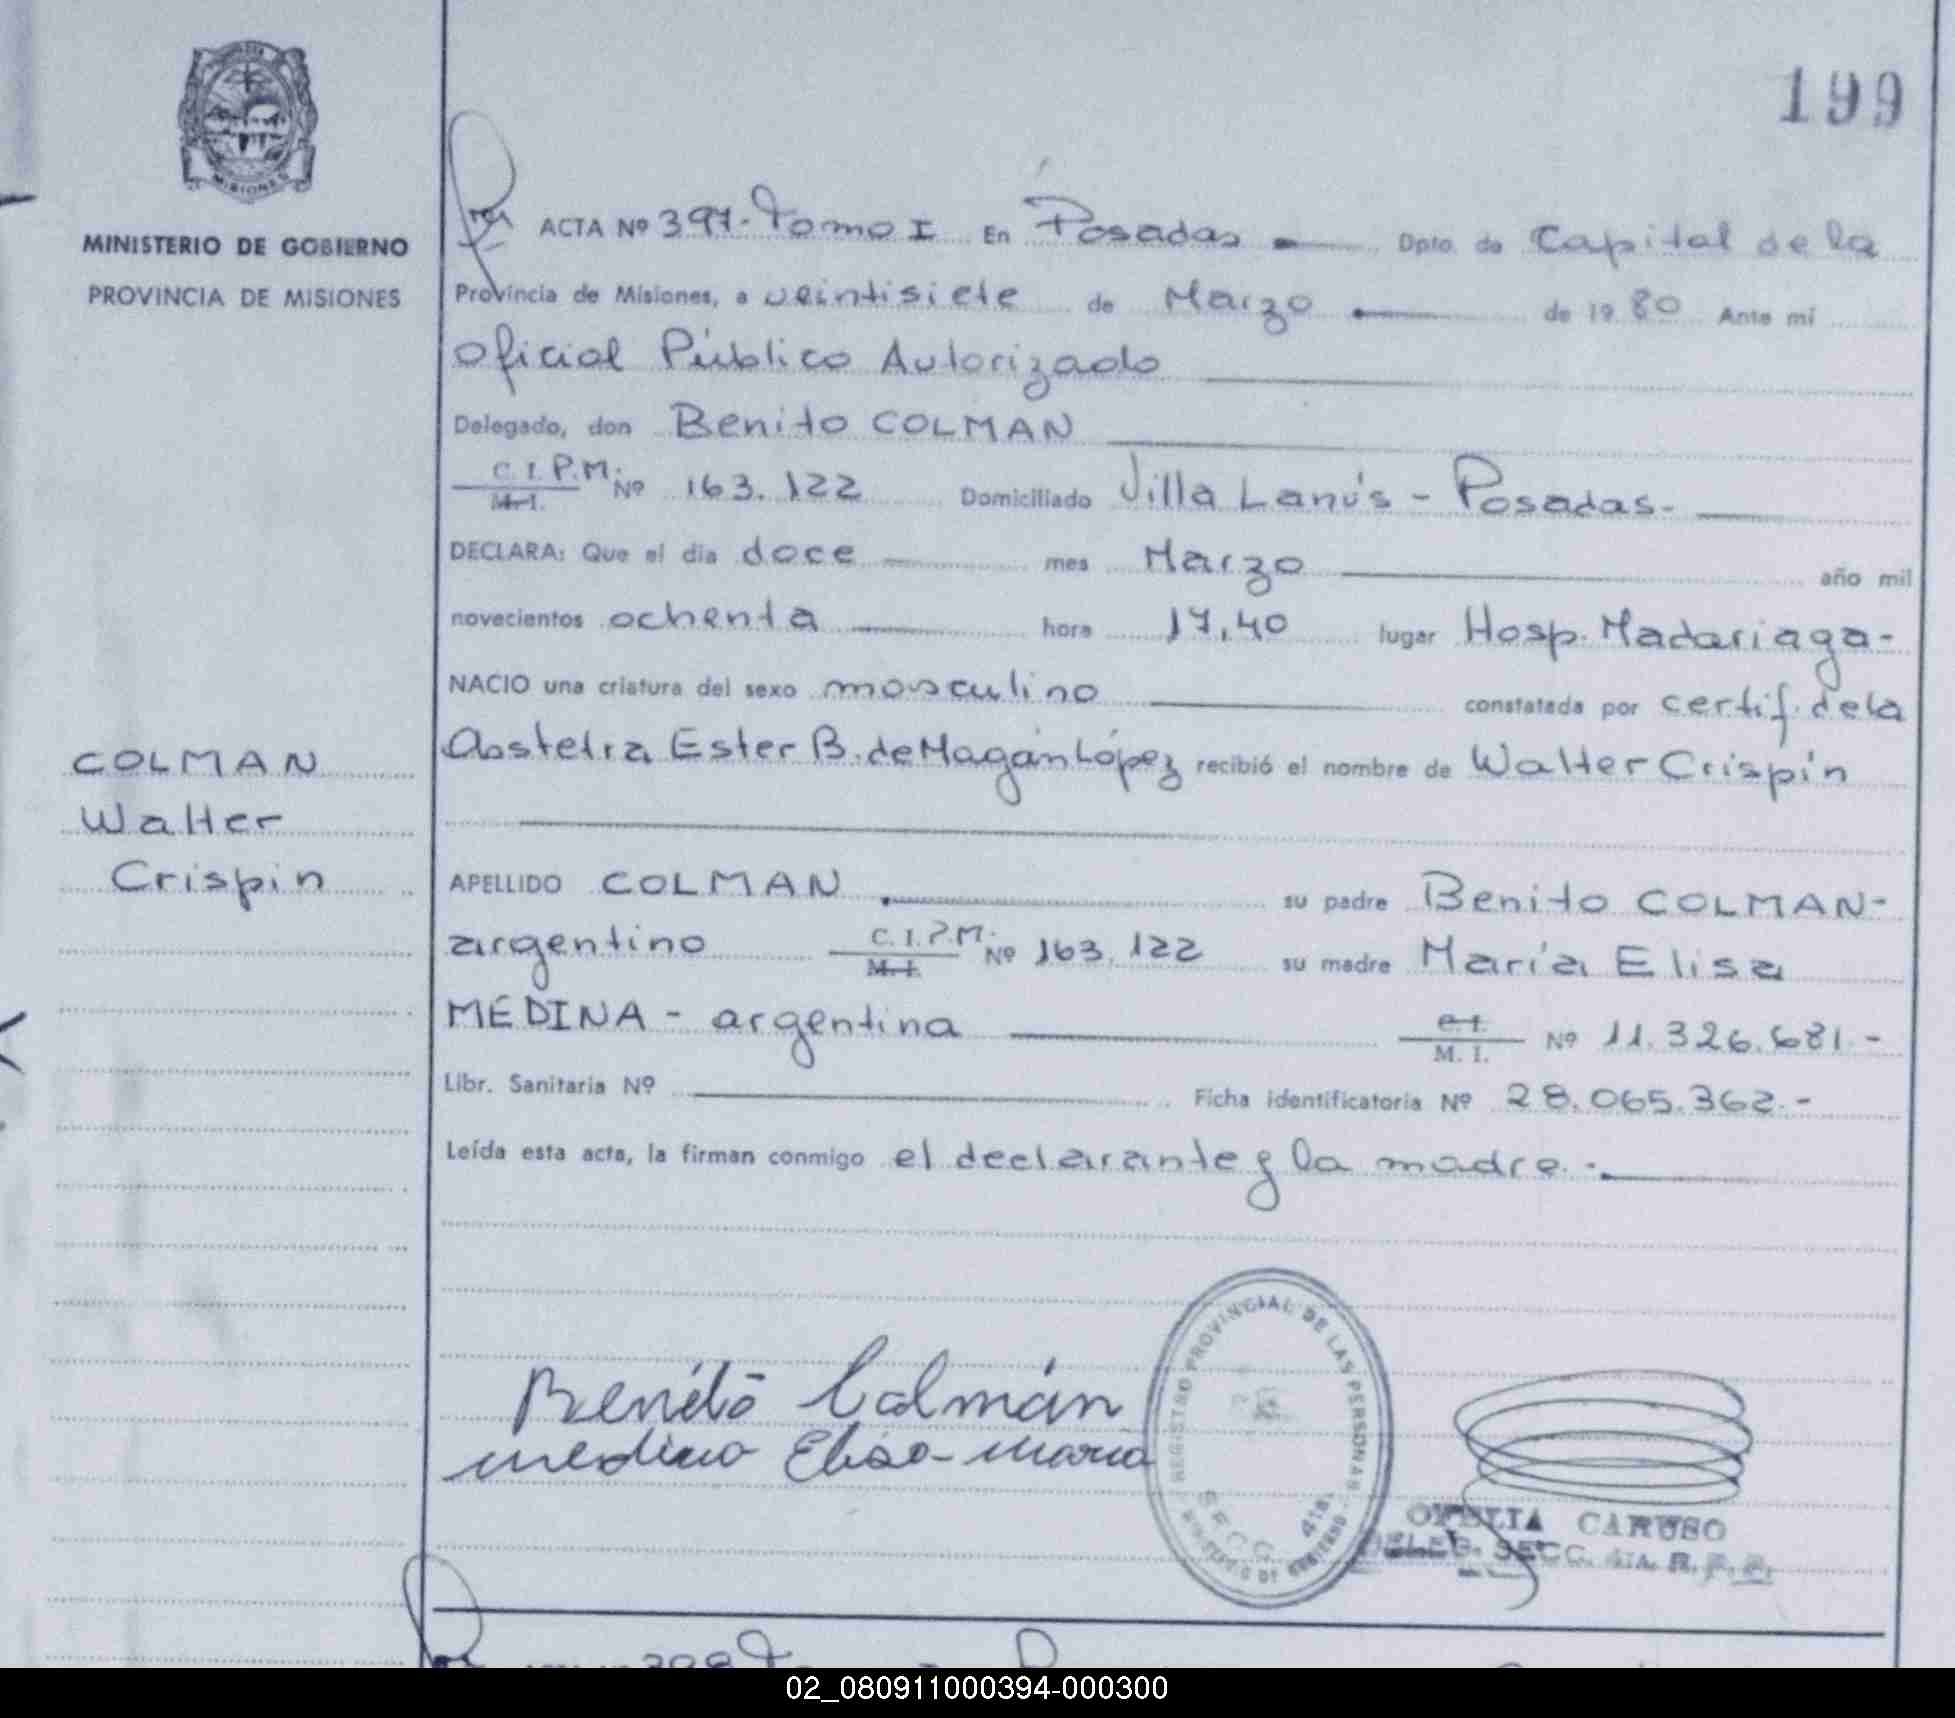 199
MISIONES
MINISTERIO DE GOBIERNO
PROVINCIA DE MISIONES
COLMAN
Walter
Crispin
ACTA Nº 397-Tomo I En Posadas Dpto. de Capital de la
Provincia de Misiones, a veintisiete de Marzo de 1980 Ante mi
Oficial Público Autorizado
Delegado, don Benito COLMAN
C. I. P.M. M. I. Nº 163.122 Domiciliado Villa Lanús - Posadas-
DECLARA: Que el dia doce mes Marzo año mil
novecientos ochenta hora 17,40 lugar Hosp. Madariaga-
NACIO una criatura del sexo masculino constatada por certif. de la
Obstetra Ester B. de Magán López recibió el nombre de Walter Crispín
APELLIDO COLMAN su padre Benito COLMAN-
argentino C.I.P.M. M. I. Nº 163.122 su madre María Elisa
MEDINA - argentina M. I. Nº 11.326.681.-
Libr. Sanitaria Nº Ficha identificatoria Nº 28.065.362.-
Leída esta acta, la firman conmigo el declarante y la madre.-
Benito Colmán
medina Elisa-maria
REGISTRO PROVINCIAL DE LAS PERSONAS
SECC. 4ta.
MINISTERIO DE GOBIERNO
OFELIA CARUSO
DELEG. SECC. 4TA. R. P. P.
398
02_080911000394-000300